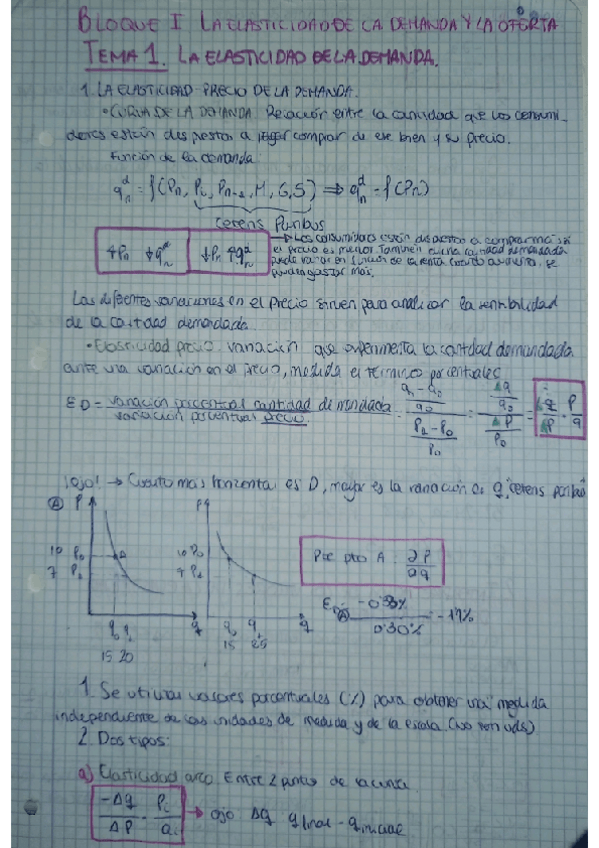 BLOQUE I LA ELASTICIDAD DE LA DEMANDA Y LA OFERTA
TEMA 1. LA ELASTICIDAD DE LA DEMANDA.
1. LA ELASTICIDAD-PRECIO DE LA DEMANDA.
• CURVA DE LA DEMANDA Relación entre la cantidad que los consumi-
dores están dispuestos a pagar comprar de ese bien y su precio.
Función de la demanda
q_n^d = f(P_n, P_c, P_n-1, M, G, S) ⇒ q_n^d = f(P_n)
Ceteris Paribus
↑P_n ↓q_n^d ↓P_n ↑q_n^d
→ Los consumidores están dispuestos a comprar más si
el precio es menor. También
puede variar en función de la renta
puedan gastar más.
Las diferentes variaciones en el precio sirven para analizar la sensibilidad
de la cantidad demandada.
• Elasticidad precio: variación que experimenta la cantidad demandada
ante una variación en el precio, medida en términos porcentuales
E D = variación porcentual cantidad demandada / variación porcentual precio
¡ojo! → Cuanto más horizontal es D, mayor es la variación de q, "ceteris paribus"
A P P
10 P₀ A 10 P₀
7 P₁ 7 P₁
q₀ q₁ q q₀ q₁ q
15 20 15
Por pto A: ∂P/∂q
1. Se utilizan valores porcentuales (%) para obtener una medida
independiente de las unidades de medida y de la escala
2. Dos tipos:
a) Elasticidad arco. Entre 2 puntos de la curva
-Δq/ΔP · → ojo Δq q final - q inicial